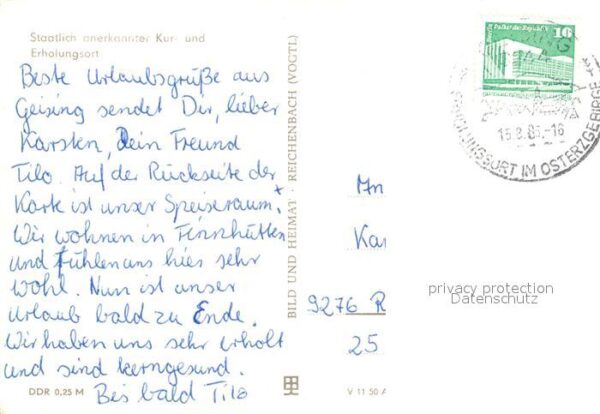 Staatlich anerkannter Kur- und
Erholungsort
Beste Urlaubsgrüße aus
Geising sendet Dir, lieber
Karsten, Dein Freund
Tilo. Auf der Rückseite der
Karte ist unser Speiseraum.
Wir wohnen in Finnhütten
und fühlen uns hier sehr
wohl. Nun ist unser
Urlaub bald zu Ende.
Wir haben uns sehr erholt
und sind kerngesund.
Bis bald Tilo
DDR 0,25 M
BILD UND HEIMAT · REICHENBACH (VOGTL)
V 11 50 A
10
Palast der Republik
IM OSTERZGEBIRGE
An
Kar
9276 R
25
privacy protection
Datenschutz